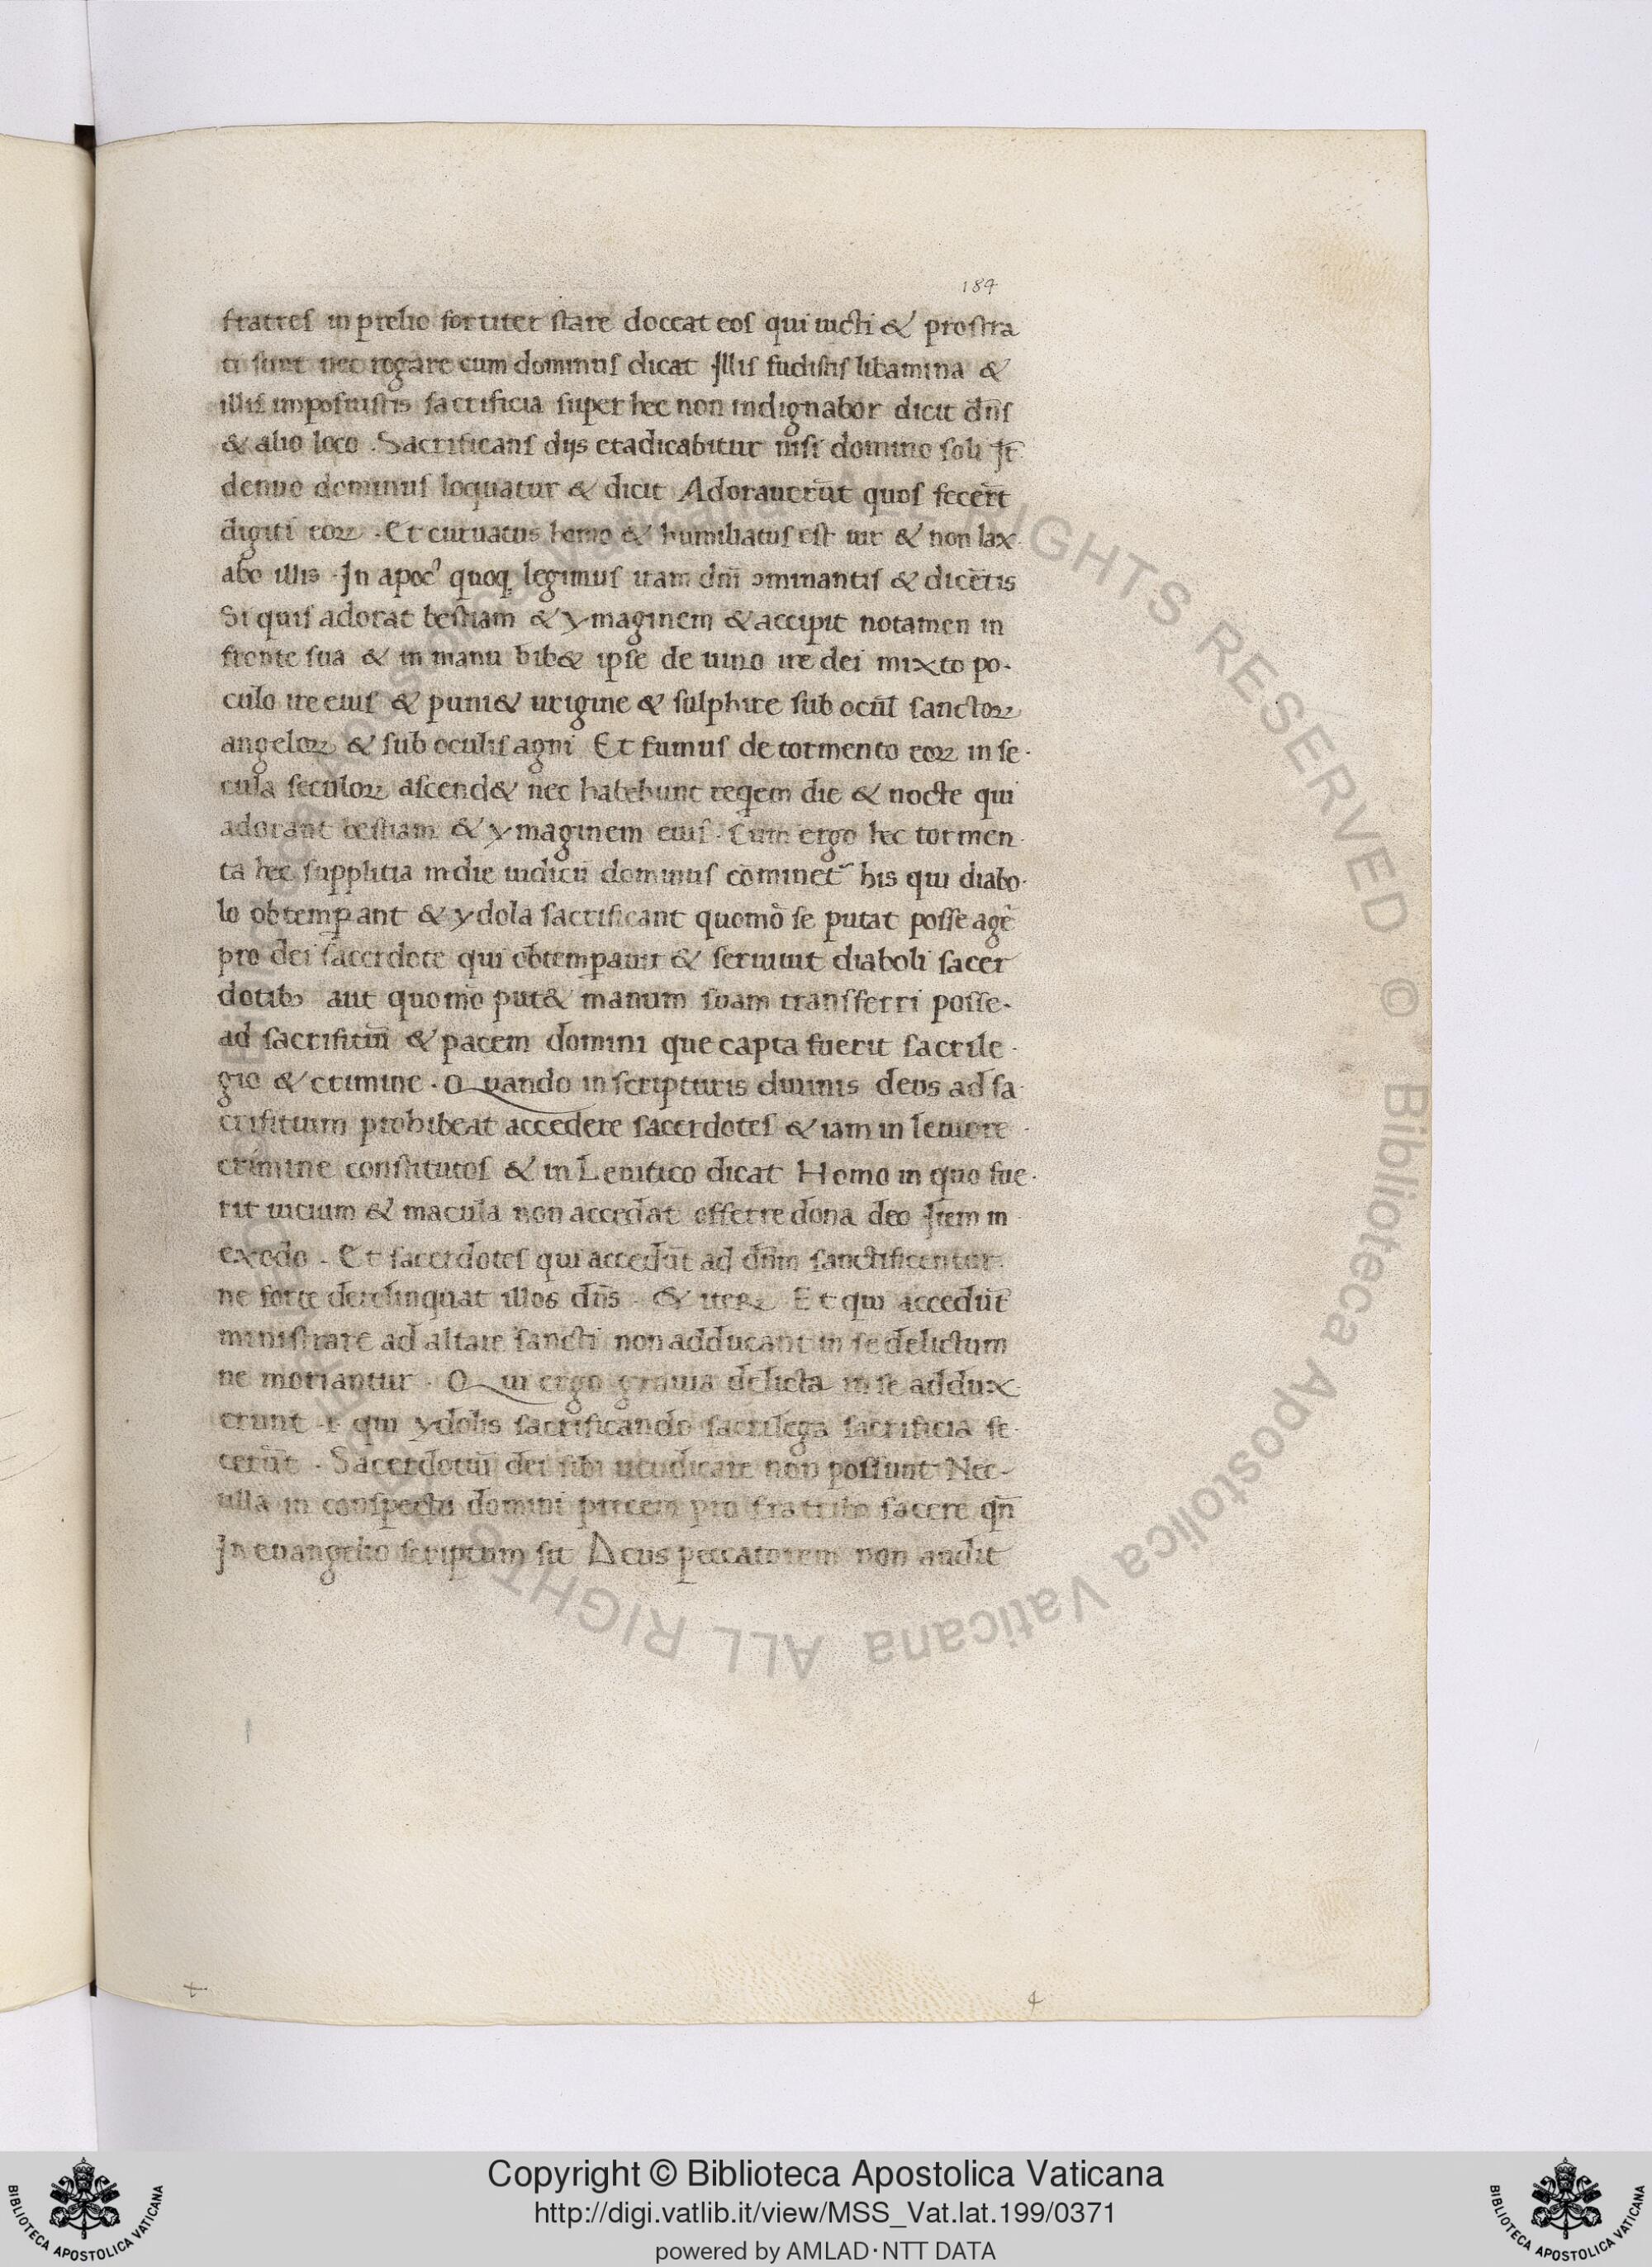 184
fratres in prelio fortiter stare doceat eos qui uicti & prostra
ti sunt nec rogare cum dominus dicat Illis fudistis libamina &
illis imposuistis sacrificia super hec non indignabor dicit dn̄s
& alio loco . Sacrificans dijs eradicabitur nisi domino soli It̄
denuo dominus loquatur & dicit Adorauerūt quos fecer̄t
digiti eoꝝ . Et curuatus homo & humiliatus est uir & non lax
abo illis . In apoc̓ quoq̨ legimus iram dn̄i ↄminantis & dicētis
Si quis adorat bestiam & ymaginem & accipit notamen in
fronte sua & in manu bib& ipse de uino ire dei mixto po-
culo ire eius & puni& urigine & sulphire sub ocul̄ sanctoꝝ
angeloꝝ & sub oculis agni Et fumus de tormento eoꝝ in se-
cula seculoꝝ ascend& nec habebunt reqiem die & nocte qui
adorant bestiam & ymaginem eius . Cum ergo hec tormen-
ta hec supplitia in die iudicii dominus cōminet᷑ his qui diabo-
lo obtemꝑant & ydola sacrificant quomō se putat posse agē
pro dei sacerdote qui obtemꝑauit & seruiuit diaboli sacer
dotibꝫ aut quomō put& manum suam transferri posse-
ad sacrifitiū & pacem domini que capta fuerit sacrile-
gio & crimine . Quando in scripturis diuinis deus ad sa-
crifitium prohibeat accedere sacerdotes & iam in leuiore
crimine constitutos & in Leuitico dicat Homo in quo fue-
rit uicium & macula non accedat offerre dona deo Item in
exodo . Et sacerdotes qui accedūt ad dn̄m sanctificentur
ne forte derelinquat illos dn̄s . & iteꝝ Et qui accedūt
ministrare ad altare sancti non adducant in se delictum
ne moriantur . Qui ergo grauia delicta in se addux
erunt . i qui ydolis sacrificando sacrilega sacrificia fe-
cerūt . Sacerdotiū dei sibi uendicare non possunt Nec-
ulla in conspectu domini precem pro fratribꝫ facere qn̄
In euangelio scriptum sit Deus peccatorem non audit
4
© Biblioteca Apostolica Vaticana ALL RIGHTS RESERVED
BIBLIOTECA APOSTOLICA VATICANA
Copyright © Biblioteca Apostolica Vaticana
http://digi.vatlib.it/view/MSS_Vat.lat.199/0371
powered by AMLAD·NTT DATA
BIBLIOTECA APOSTOLICA VATICANA